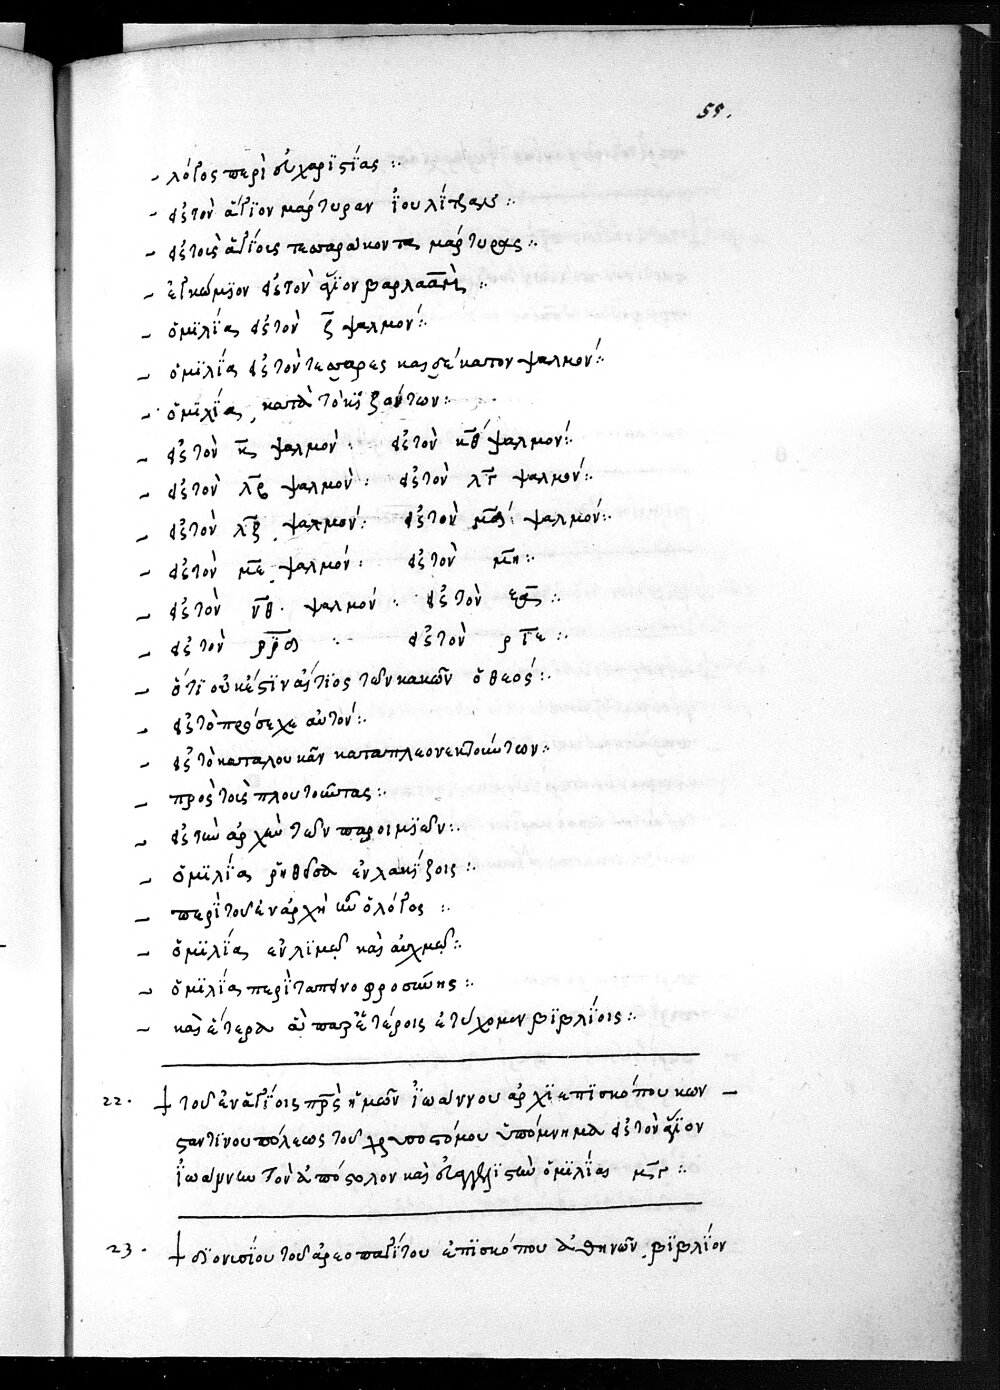 55.
- λόγος περὶ εὐχαριστίας :·
- εἰς τὸν ἅγιον μάρτυραν ϊουλίτταν :·
- εἰς τοὶς ἅγίοις τεσσαράκοντα μάρτυρας :·
- ἐγκώμϊον εἰς τὸν ἅγϊον βαρλαὰμ :·
- ὅμϊλίας εἰς τὸν ζ ψαλμόν :·
- ὁμϊλΐα εἰς τὸν τέσσαρες και δέκατον ψαλμόν :·
- ὅμϊλΐας κατὰ τοκϊζόντων :·
- εἰς τὸν ψαλμὸν : εἰς τὸν κθ ψαλμόν :·
- εἰς τὸν λβ ψαλμὸν : εἰς τὸν λγ ψαλμόν :·
- εἰς τὸν λζ ψαλμόν : εἰς τὸν μδ ψαλμόν :·
- εἰς τὸν με ψαλμόν : εἰς τὸν μη :·
- εἰς τὸν νθ ψαλμόν : εἰς τὸν :·
- εἰς τὸν : εἰς τὸν ριε :·
- ὅτϊ οὐκ ἔστϊν αἴτϊος τῶν κακῶν ὁ θεός :·
- εἰς τὸ πρόσεχε αυτόν :·
- εἰς τὸ κατὰ λουκᾶν κατὰ πλεονεκτούντων :·
- πρὸς τοὶς πλουτοῦντας :·
- εἰς τὼ αρχὼ τῶν παροιμϊῶν :·
- ὅμϊλΐας ῥηθεῖσα ἐν λακϊζοις :·
- περὶ τοῦ ἐν αρχῆ ὦ ὁ λόγος :·
- ὅμϊλΐας ἐν λϊμῶ και αυχμῶ :·
- ὅμϊλΐας περὶ ταπεινοφροσύνης :·
- και ἕτερα ἃ παρ ἑτέροις ἐτύχομεν βϊβλΐοις :·
22. † τοῦ ἐν ἁγΐοις πρς ἡμῶν ϊωάννου αρχϊεπϊσκόπου κων –
σταντϊνουπόλεως τοῦ χρυσοστόμου ὑπόμνημα εἰς τὸν ἅγϊον
ϊωάννω τὸν ἀπόστολον και εὐαγγελϊστὼ ὅμϊλΐας :·
23. † δϊονισίου τοῦ ἀρεοπαγΐτου ἐπϊσκόπου ἀθηνῶν βϊβλΐον